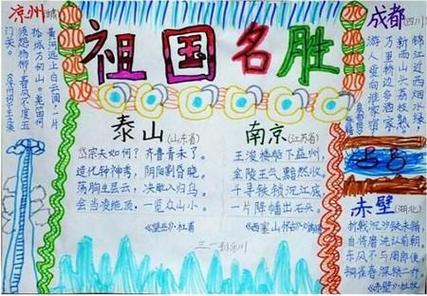 祖国名胜
凉州
黄河远上白云间,一片
孤城万仞山。羌笛何
须怨杨柳,春风不度玉
门关。
泰山(山东省)
岱宗夫如何?齐鲁青未了。
造化钟神秀,阴阳割昏晓。
荡胸生层云,决眦入归鸟。
会当凌绝顶,一览众山小。
《望岳》杜甫
南京(江苏省)
王浚楼船下益州,
金陵王气黯然收。
千寻铁锁沉江底,
一片降幡出石头。
《西塞山怀古》刘禹锡
成都(四川)
锦江近西烟水绿,
新雨山头荔枝熟。
万里桥边多酒家,
游人爱向谁家宿。
赤壁(湖北)
折戟沉沙铁未销,
自将磨洗认前朝。
东风不与周郎便,
铜雀春深锁二乔。
《赤壁》杜牧